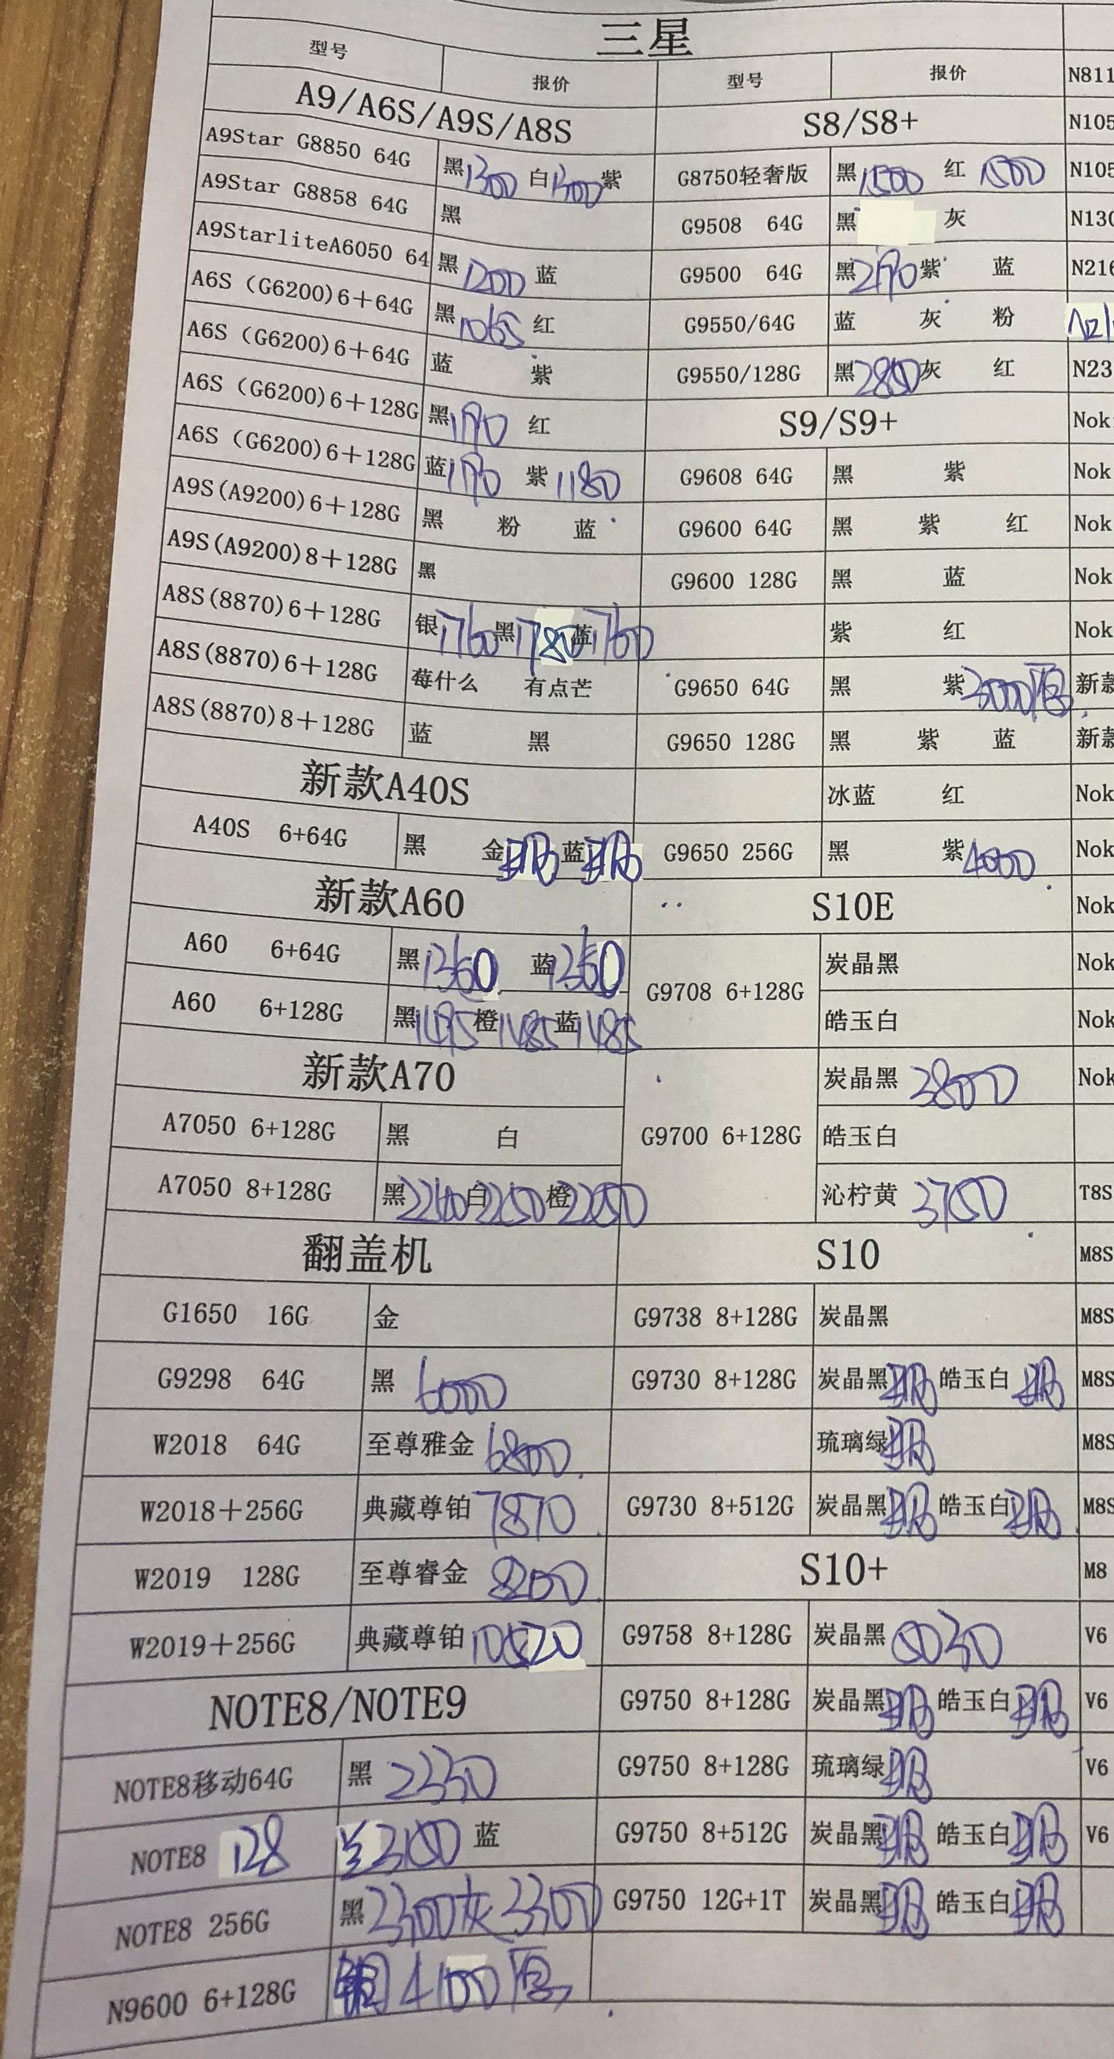 三星
型号 报价 型号 报价 N811
A9/A6S/A9S/A8S S8/S8+ N105
A9Star G8850 64G 黑1300 白1300紫 G8750轻奢版 黑1500 红1500 N105
A9Star G8858 64G 黑 G9508 64G 黑 灰 N130
A9StarliteA6050 64 黑1200 蓝 G9500 64G 黑2190紫 蓝 N216
A6S (G6200)6+64G 黑1065红 G9550/64G 蓝 灰 粉
A6S (G6200)6+64G 蓝 紫 G9550/128G 黑2800灰 红 N23
A6S (G6200)6+128G 黑1190 红 S9/S9+ Nok
A6S (G6200)6+128G 蓝1190 紫1180 G9608 64G 黑 紫 Nok
A9S(A9200)6+128G 黑 粉 蓝 G9600 64G 黑 紫 红 Nok
A9S(A9200)8+128G 黑 G9600 128G 黑 蓝 Nok
A8S(8870)6+128G 银1760黑1780蓝1760 紫 红 Nok
A8S(8870)6+128G 莓什么 有点芒 G9650 64G 黑 紫3000 新款
A8S(8870)8+128G 蓝 黑 G9650 128G 黑 紫 蓝 新款
新款A40S 冰蓝 红 Nok
A40S 6+64G 黑 金 蓝 G9650 256G 黑 紫4000 Nok
新款A60 S10E Nok
A60 6+64G 黑1360 蓝1360 G9708 6+128G 炭晶黑 Nok
A60 6+128G 黑1495橙1485蓝1485 皓玉白 Nok
新款A70 炭晶黑 3800 Nok
A7050 6+128G 黑 白 G9700 6+128G 皓玉白
A7050 8+128G 黑2240白2250橙2250 沁柠黄 3750 T8S
翻盖机 S10 M8S
G1650 16G 金 G9738 8+128G 炭晶黑 M8S
G9298 64G 黑 6000 G9730 8+128G 炭晶黑 皓玉白 M8S
W2018 64G 至尊雅金6800 琉璃绿 M8S
W2018+256G 典藏尊铂7870 G9730 8+512G 炭晶黑 皓玉白 M8S
W2019 128G 至尊睿金 8200 S10+ M8
W2019+256G 典藏尊铂10520 G9758 8+128G 炭晶黑 5030 V6
NOTE8/NOTE9 G9750 8+128G 炭晶黑 皓玉白 V6
NOTE8移动64G 黑 2330 G9750 8+128G 琉璃绿 V6
NOTE8 128 3100 蓝 G9750 8+512G 炭晶黑 皓玉白 V6
NOTE8 256G 黑3300灰3300 G9750 12G+1T 炭晶黑 皓玉白
N9600 6+128G 铜4100